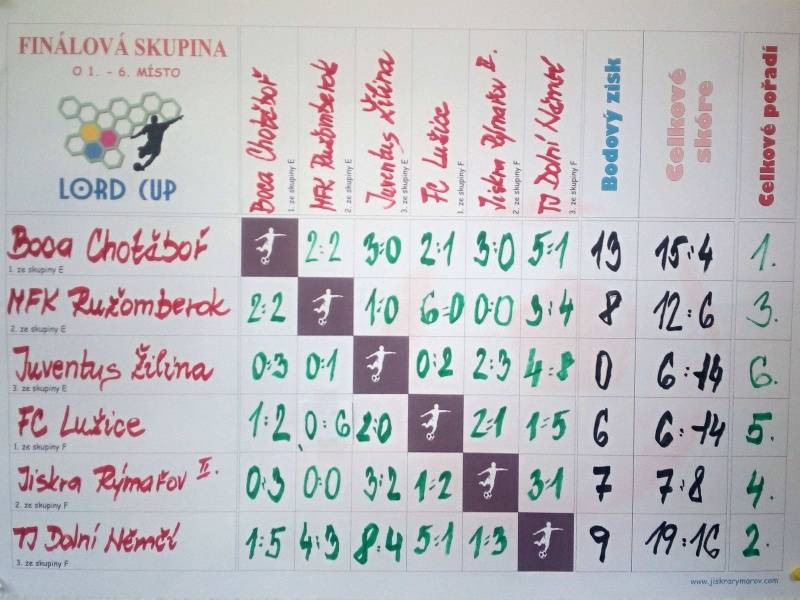 FINÁLOVÁ SKUPINA
O 1. - 6. MÍSTO
LORD CUP
Boca Chotěboř
1. ze skupiny E
MFK Ružomberok
2. ze skupiny E
Juventus Žilina
3. ze skupiny E
FC Lužice
1. ze skupiny F
Jiskra Rýmařov II.
2. ze skupiny F
TJ Dolní Němčí
3. ze skupiny F
Bodový zisk
Celkové skóre
Celkové pořadí
Boca Chotěboř 2:2 3:0 2:1 3:0 5:1 13 15:4 1.
1. ze skupiny E
MFK Ružomberok 2:2 1:0 6:0 0:0 3:4 8 12:6 3.
2. ze skupiny E
Juventus Žilina 0:3 0:1 0:2 2:3 4:8 0 6:14 6.
3. ze skupiny E
FC Lužice 1:2 0:6 2:0 2:1 1:5 6 6:14 5.
1. ze skupiny F
Jiskra Rýmařov II. 0:3 0:0 3:2 1:2 3:1 7 7:8 4.
2. ze skupiny F
TJ Dolní Němčí 1:5 4:3 8:4 5:1 1:3 9 19:16 2.
3. ze skupiny F
www.jiskrarymarov.com